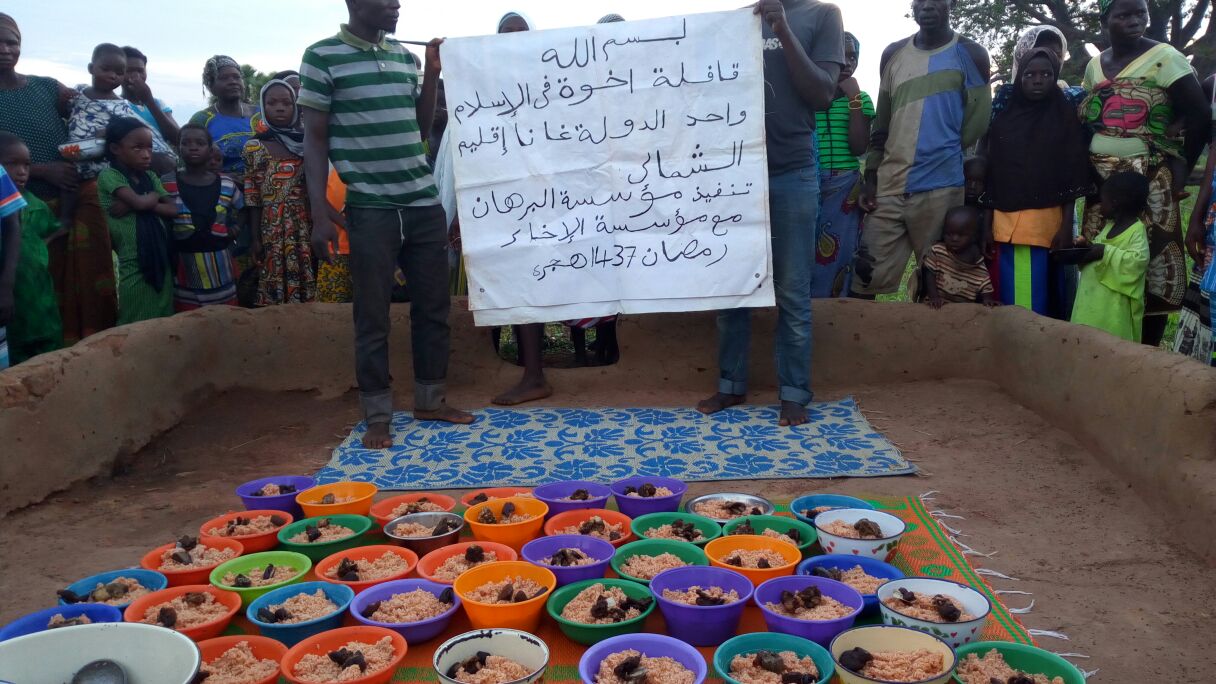 بسم الله
قافلة اخوة في الإسلام
واحد الدولة غانا إقليم
الشمالى
تنفيذ مؤسسة البرهان
مع مؤسسة الإخاء
رمضان 1437 هجرى